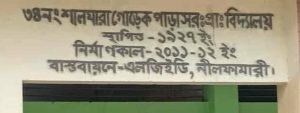 ৩৪নং শালমারা গোড়েক পাড়া সরঃ প্রাঃ বিদ্যালয়
স্থাপিত - ১৯২৭ ইং
নির্মাণকাল - ২০১১-১২ ইং
বাস্তবায়নে - এলজিইডি, নীলফামারী।